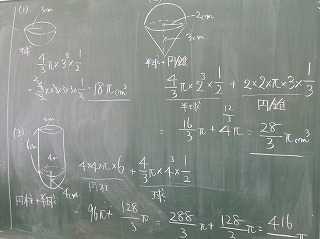 (1) 3m
半球
4/3 π × 3³ × 1/2
= 18π cm³
2cm
3cm
半球 + 円錐
4/3 π × 2³ × 1/2 + 2 × 2 × π × 3 × 1/3
半球 円錐
= 16/3 π + 4π = 28/3 π cm³
12/3
(3)
6m
4cm
円柱 + 半球
4 × 4 × π × 6 + 4/3 π × 4³ × 1/2
円柱
= 96π + 128/3 π = 288/3 π + 128/3 π = 416/